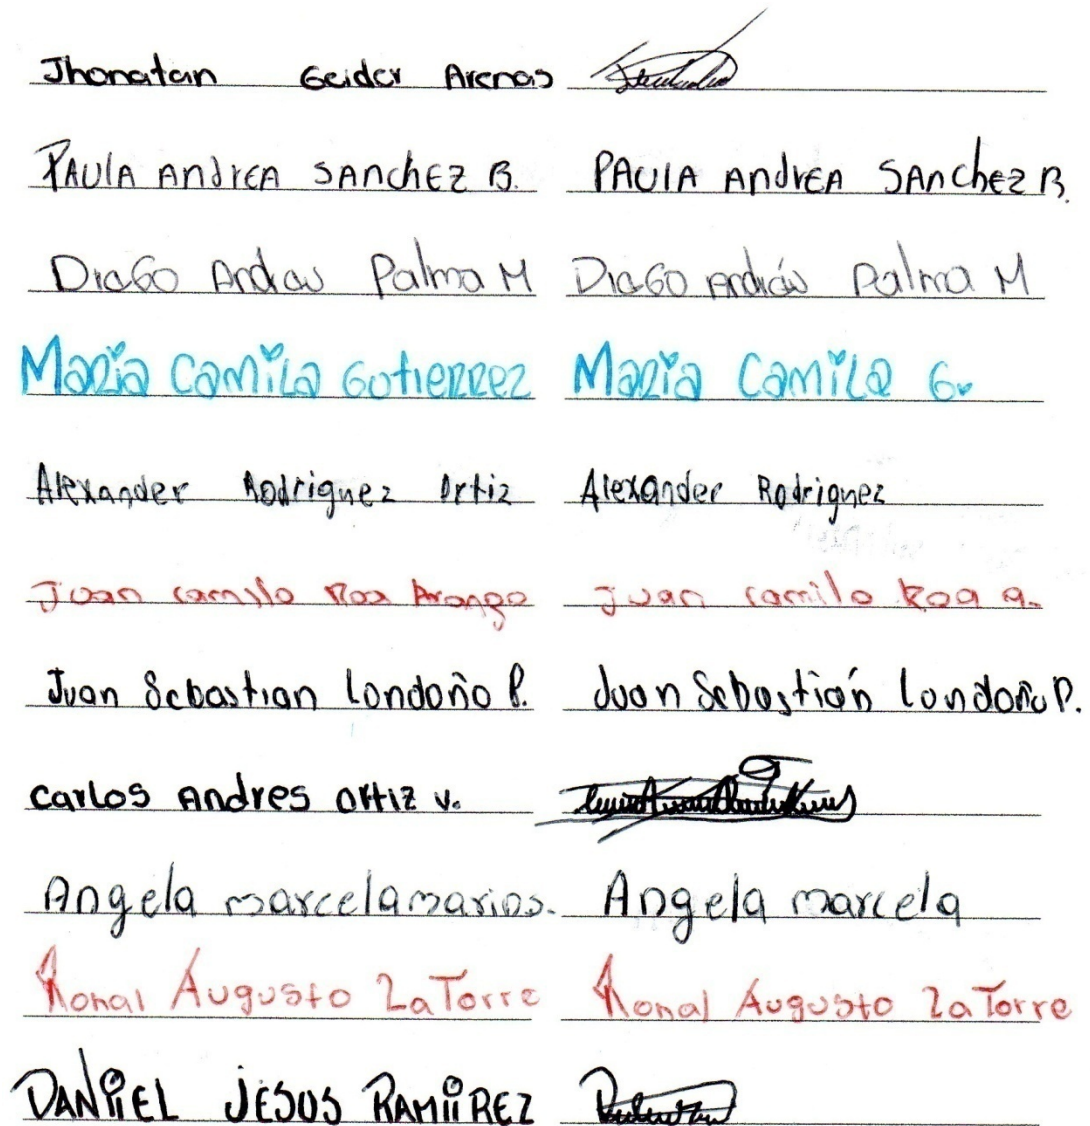 Jhonatan Geider Arenas
PAULA ANdREA SANchEZ B. PAULA ANdrEA SANchez B.
DIEGO Andres Palma M DIEGO Andrés Palma M
Maria Camila Gutierrez Maria Camila G.
Alexander Rodriguez Ortiz Alexander Rodriguez
Juan camilo Roa Arango Juan camilo Roa a.
Juan Sebastian Londoño P. Juan Sebastián Londoño P.
carlos Andres ortiz v.
Angela marcela marios. Angela marcela
Ronal Augusto LaTorre Ronal Augusto LaTorre
DANiEL JESUS RAMiREZ